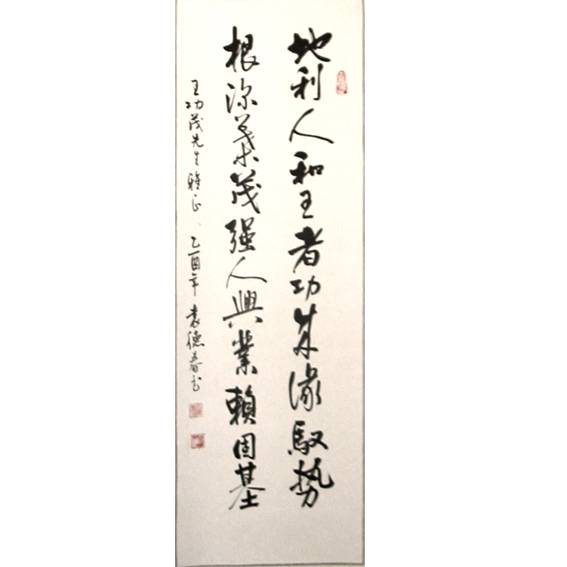 地利人和王者功成缘驭势
根深葉茂强人興業賴固基
王功茂先生雅正 乙酉年 袁德春书